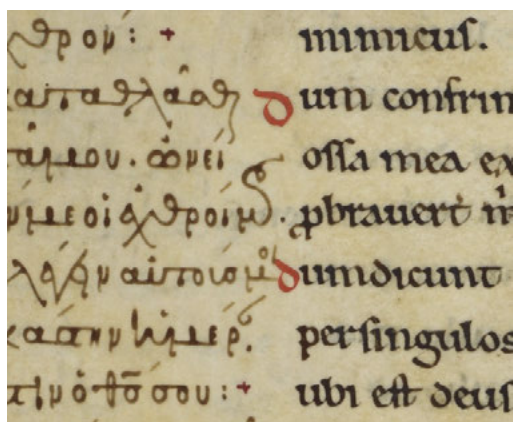 χθρον: +
καταθλᾶσθ
τά μου. ὠνεί
με οἱ ἐχθροί μου.
λέγειν αὐτοισμοι
κάστην ἡμέρ.
τιν ὁ θ̅ς̅ σου: +
inimicus.
Dum confrin
ossa mea ex
pbrauert m̅
dum dicunt
per singulos
ubi est deus